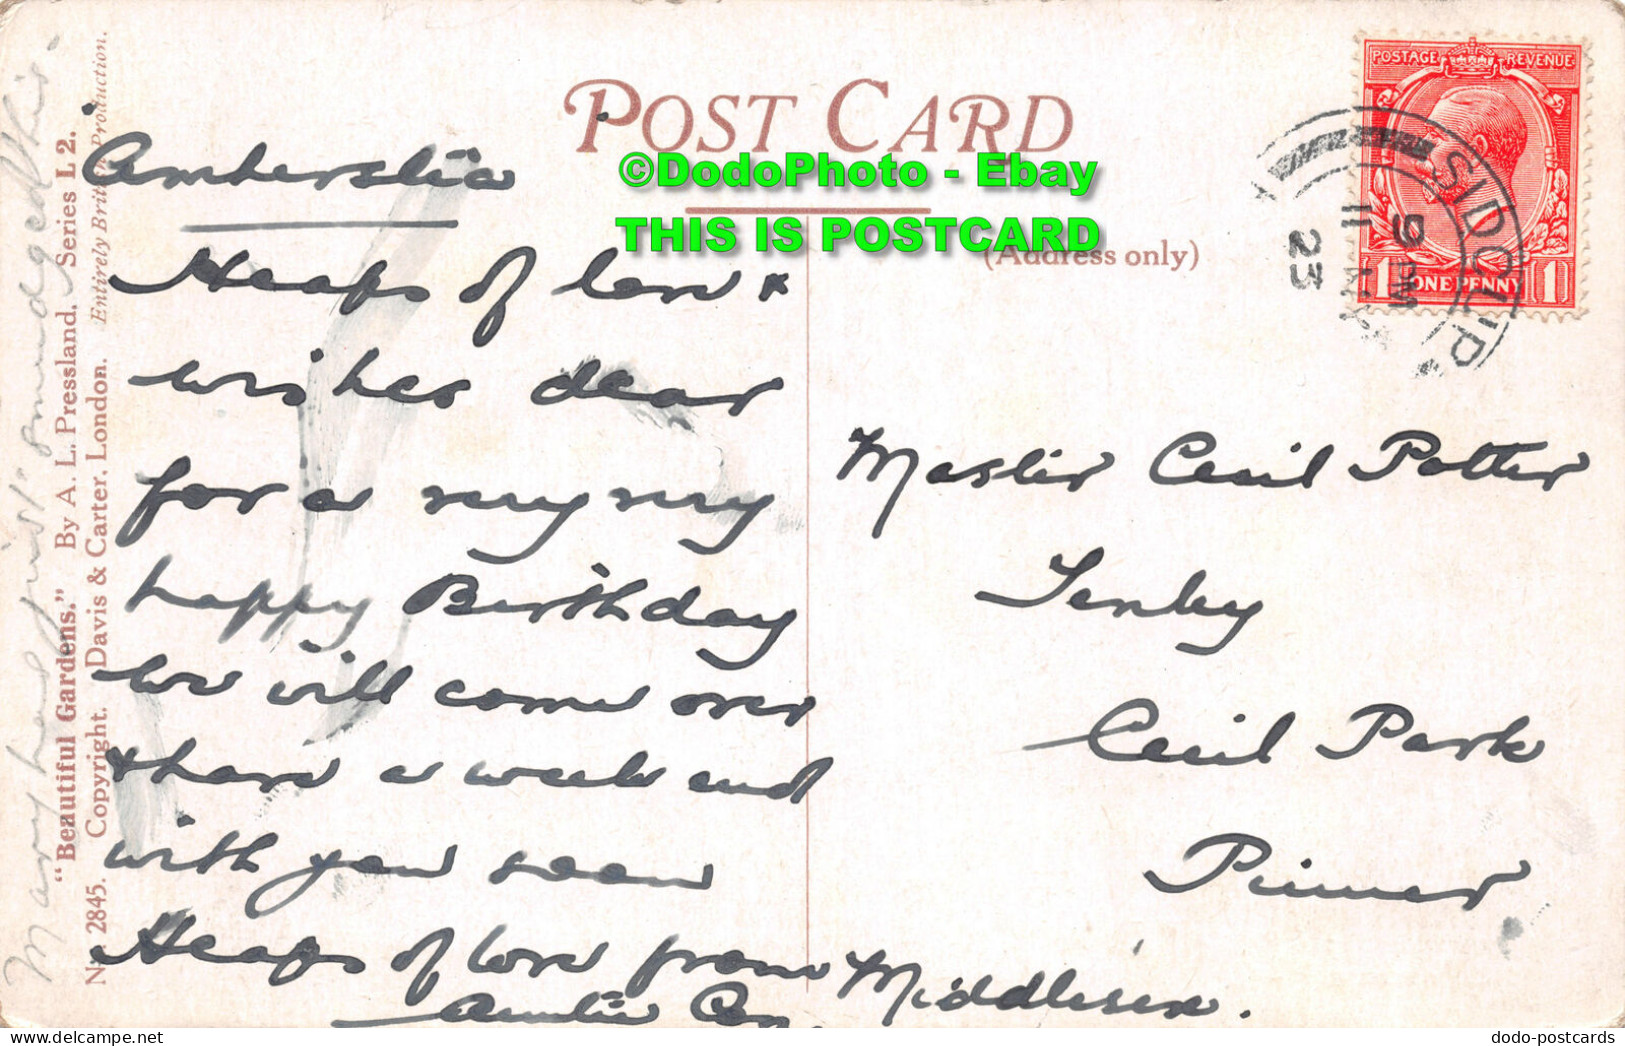 POST CARD
©DodoPhoto - Ebay
THIS IS POSTCARD
(Address only)
POSTAGE REVENUE
1 ONE PENNY 1
SIDCUP
9 PM
11
23
Heaps of love &
wishes dear
for a very very
happy Birthday
we will come over
& have a week end
with you soon
Heaps of love from
Auntie
Master Cecil Potter
Tenby
Cecil Park
Pinner
Middlesex.
Mary has just smudged this.
"Beautiful Gardens." By A. L. Pressland. Series L 2.
No 2845. Copyright. Davis & Carter, London. Entirely British Production.
dodo-postcards